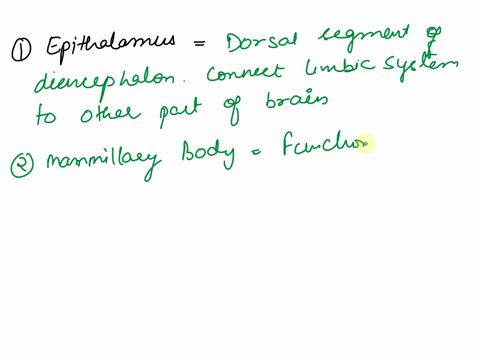 ① Epithalamus = Dorsal segment of
diencephalon. Connect limbic system
to other part of brain
② mammillary Body = Function